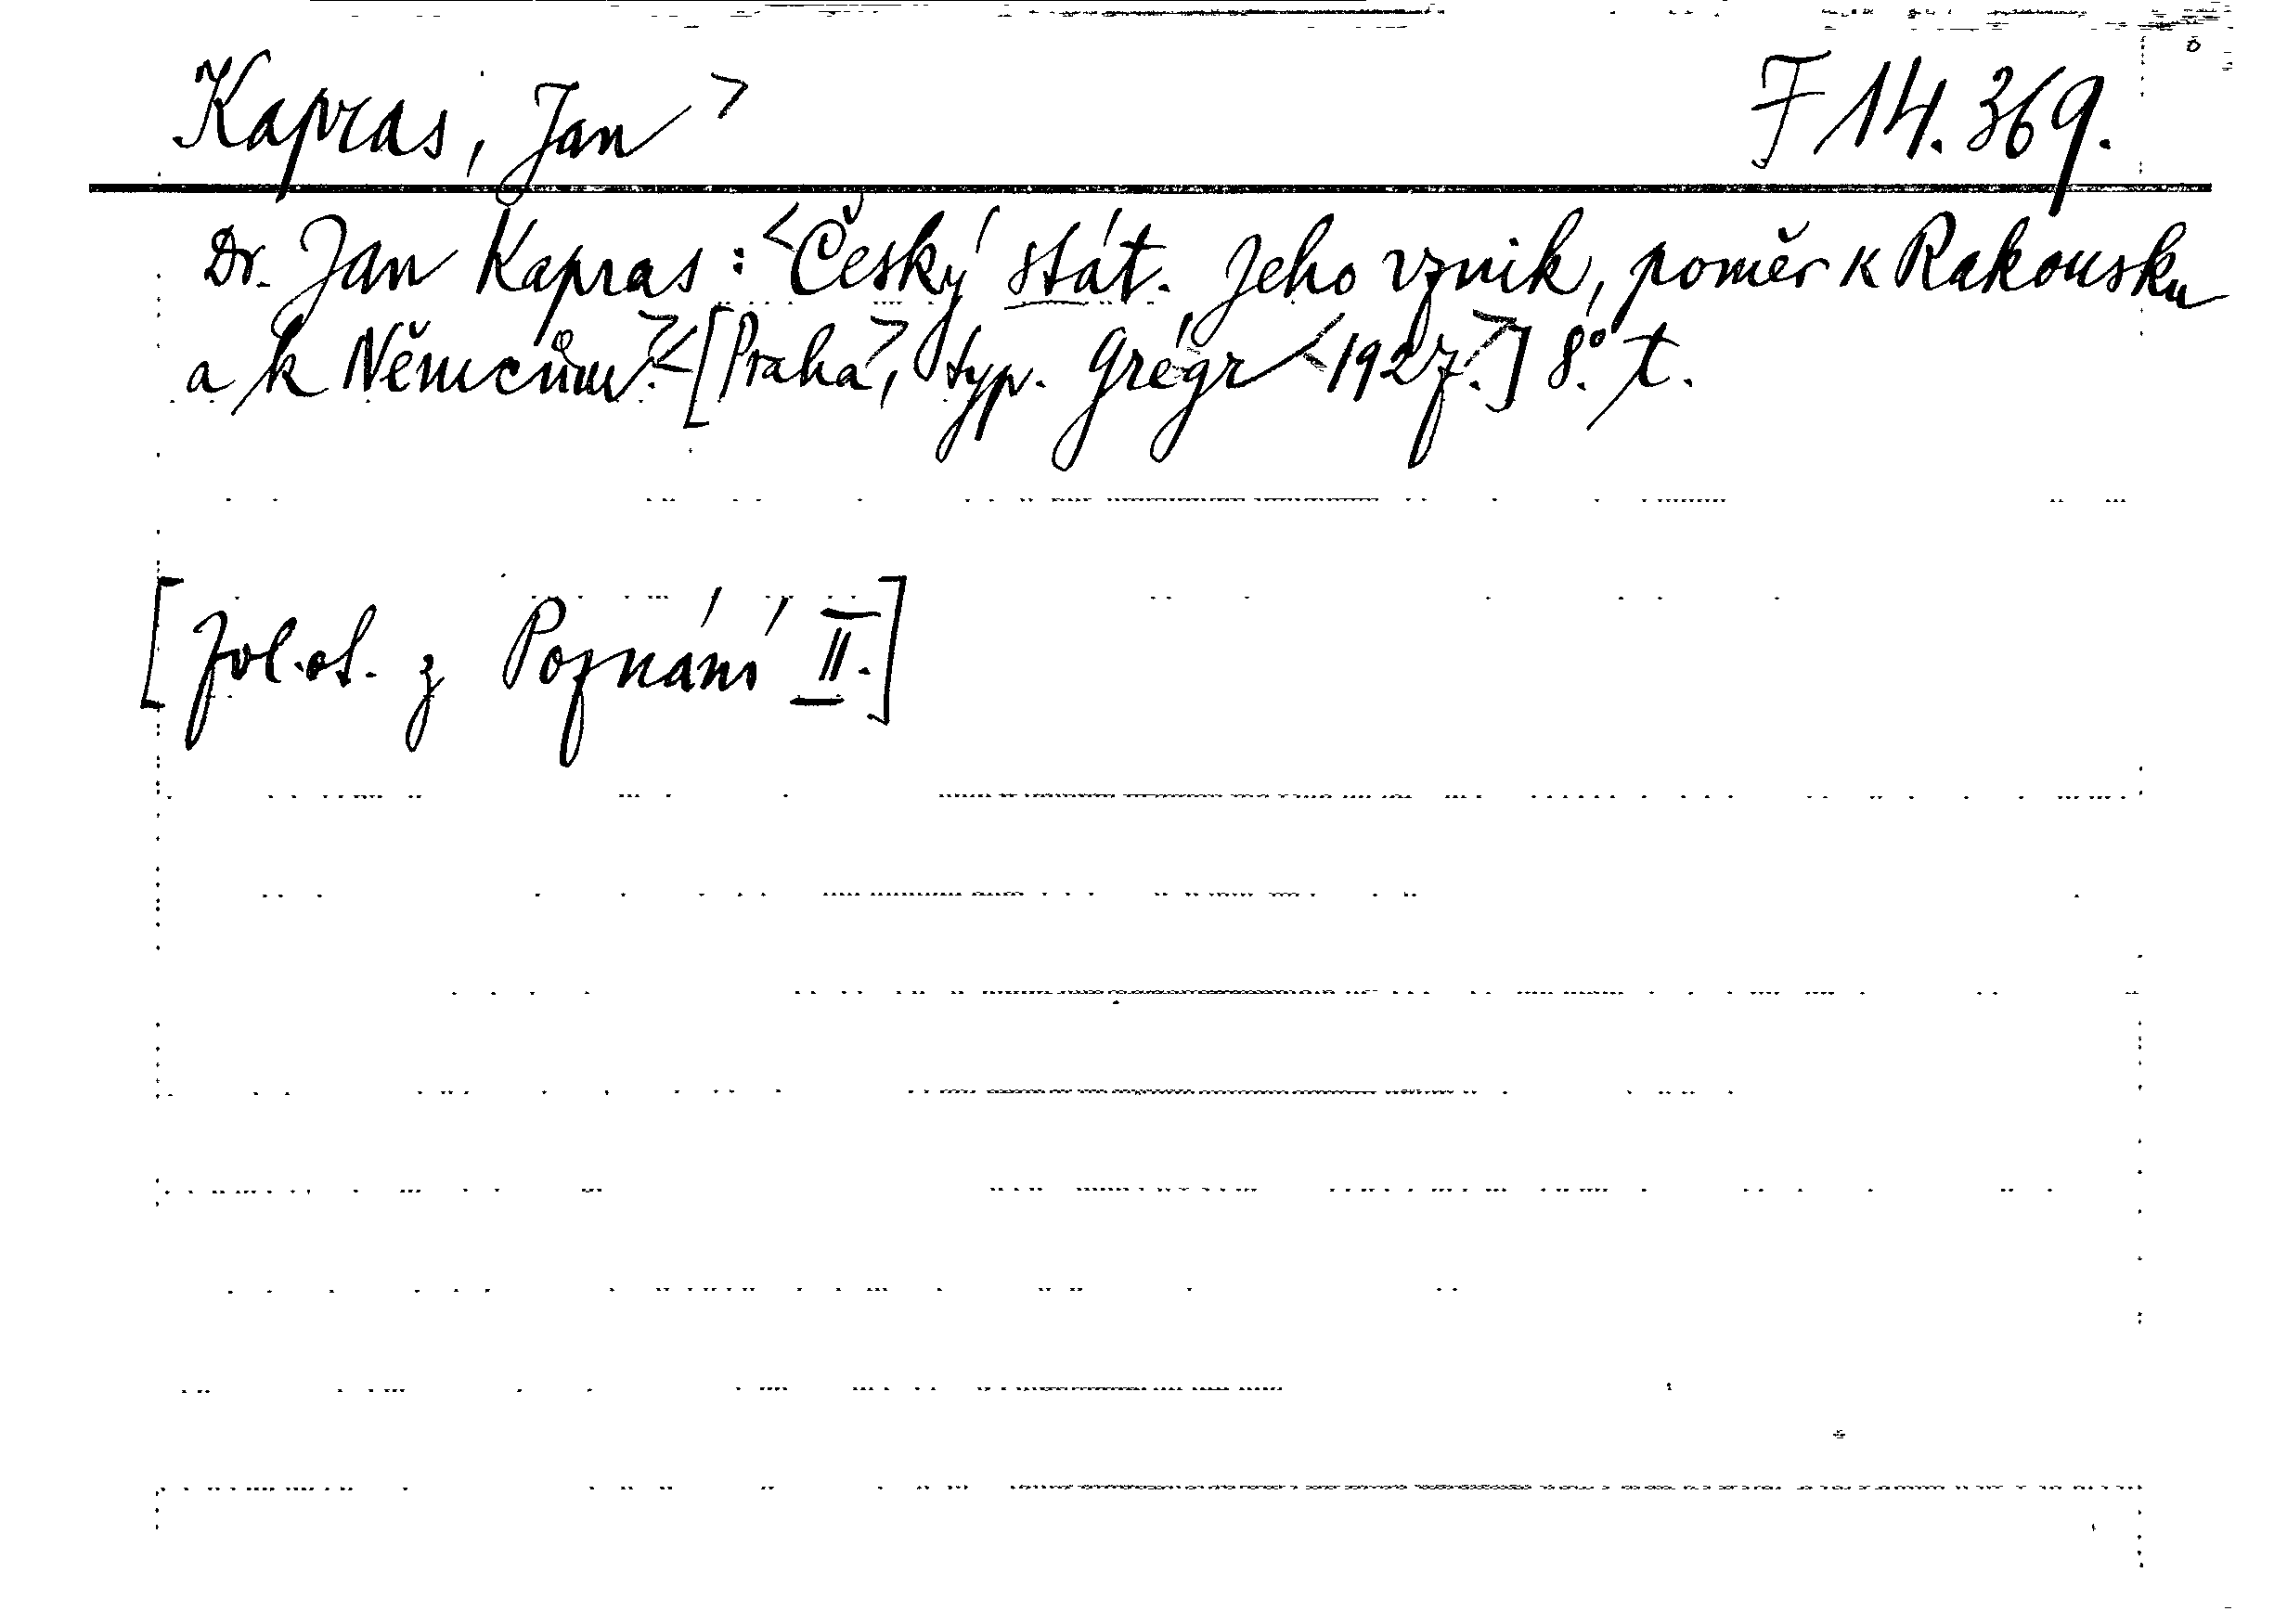 Kapras, Jan > F 14.369.
Dr. Jan Kapras: <Český stát. Jeho vznik, poměr k Rakousku
a k Němcům.> <[Praha>, typ. Grégr <1927.>] 8.° t.
[Zvl. ot. z Poznání II.]